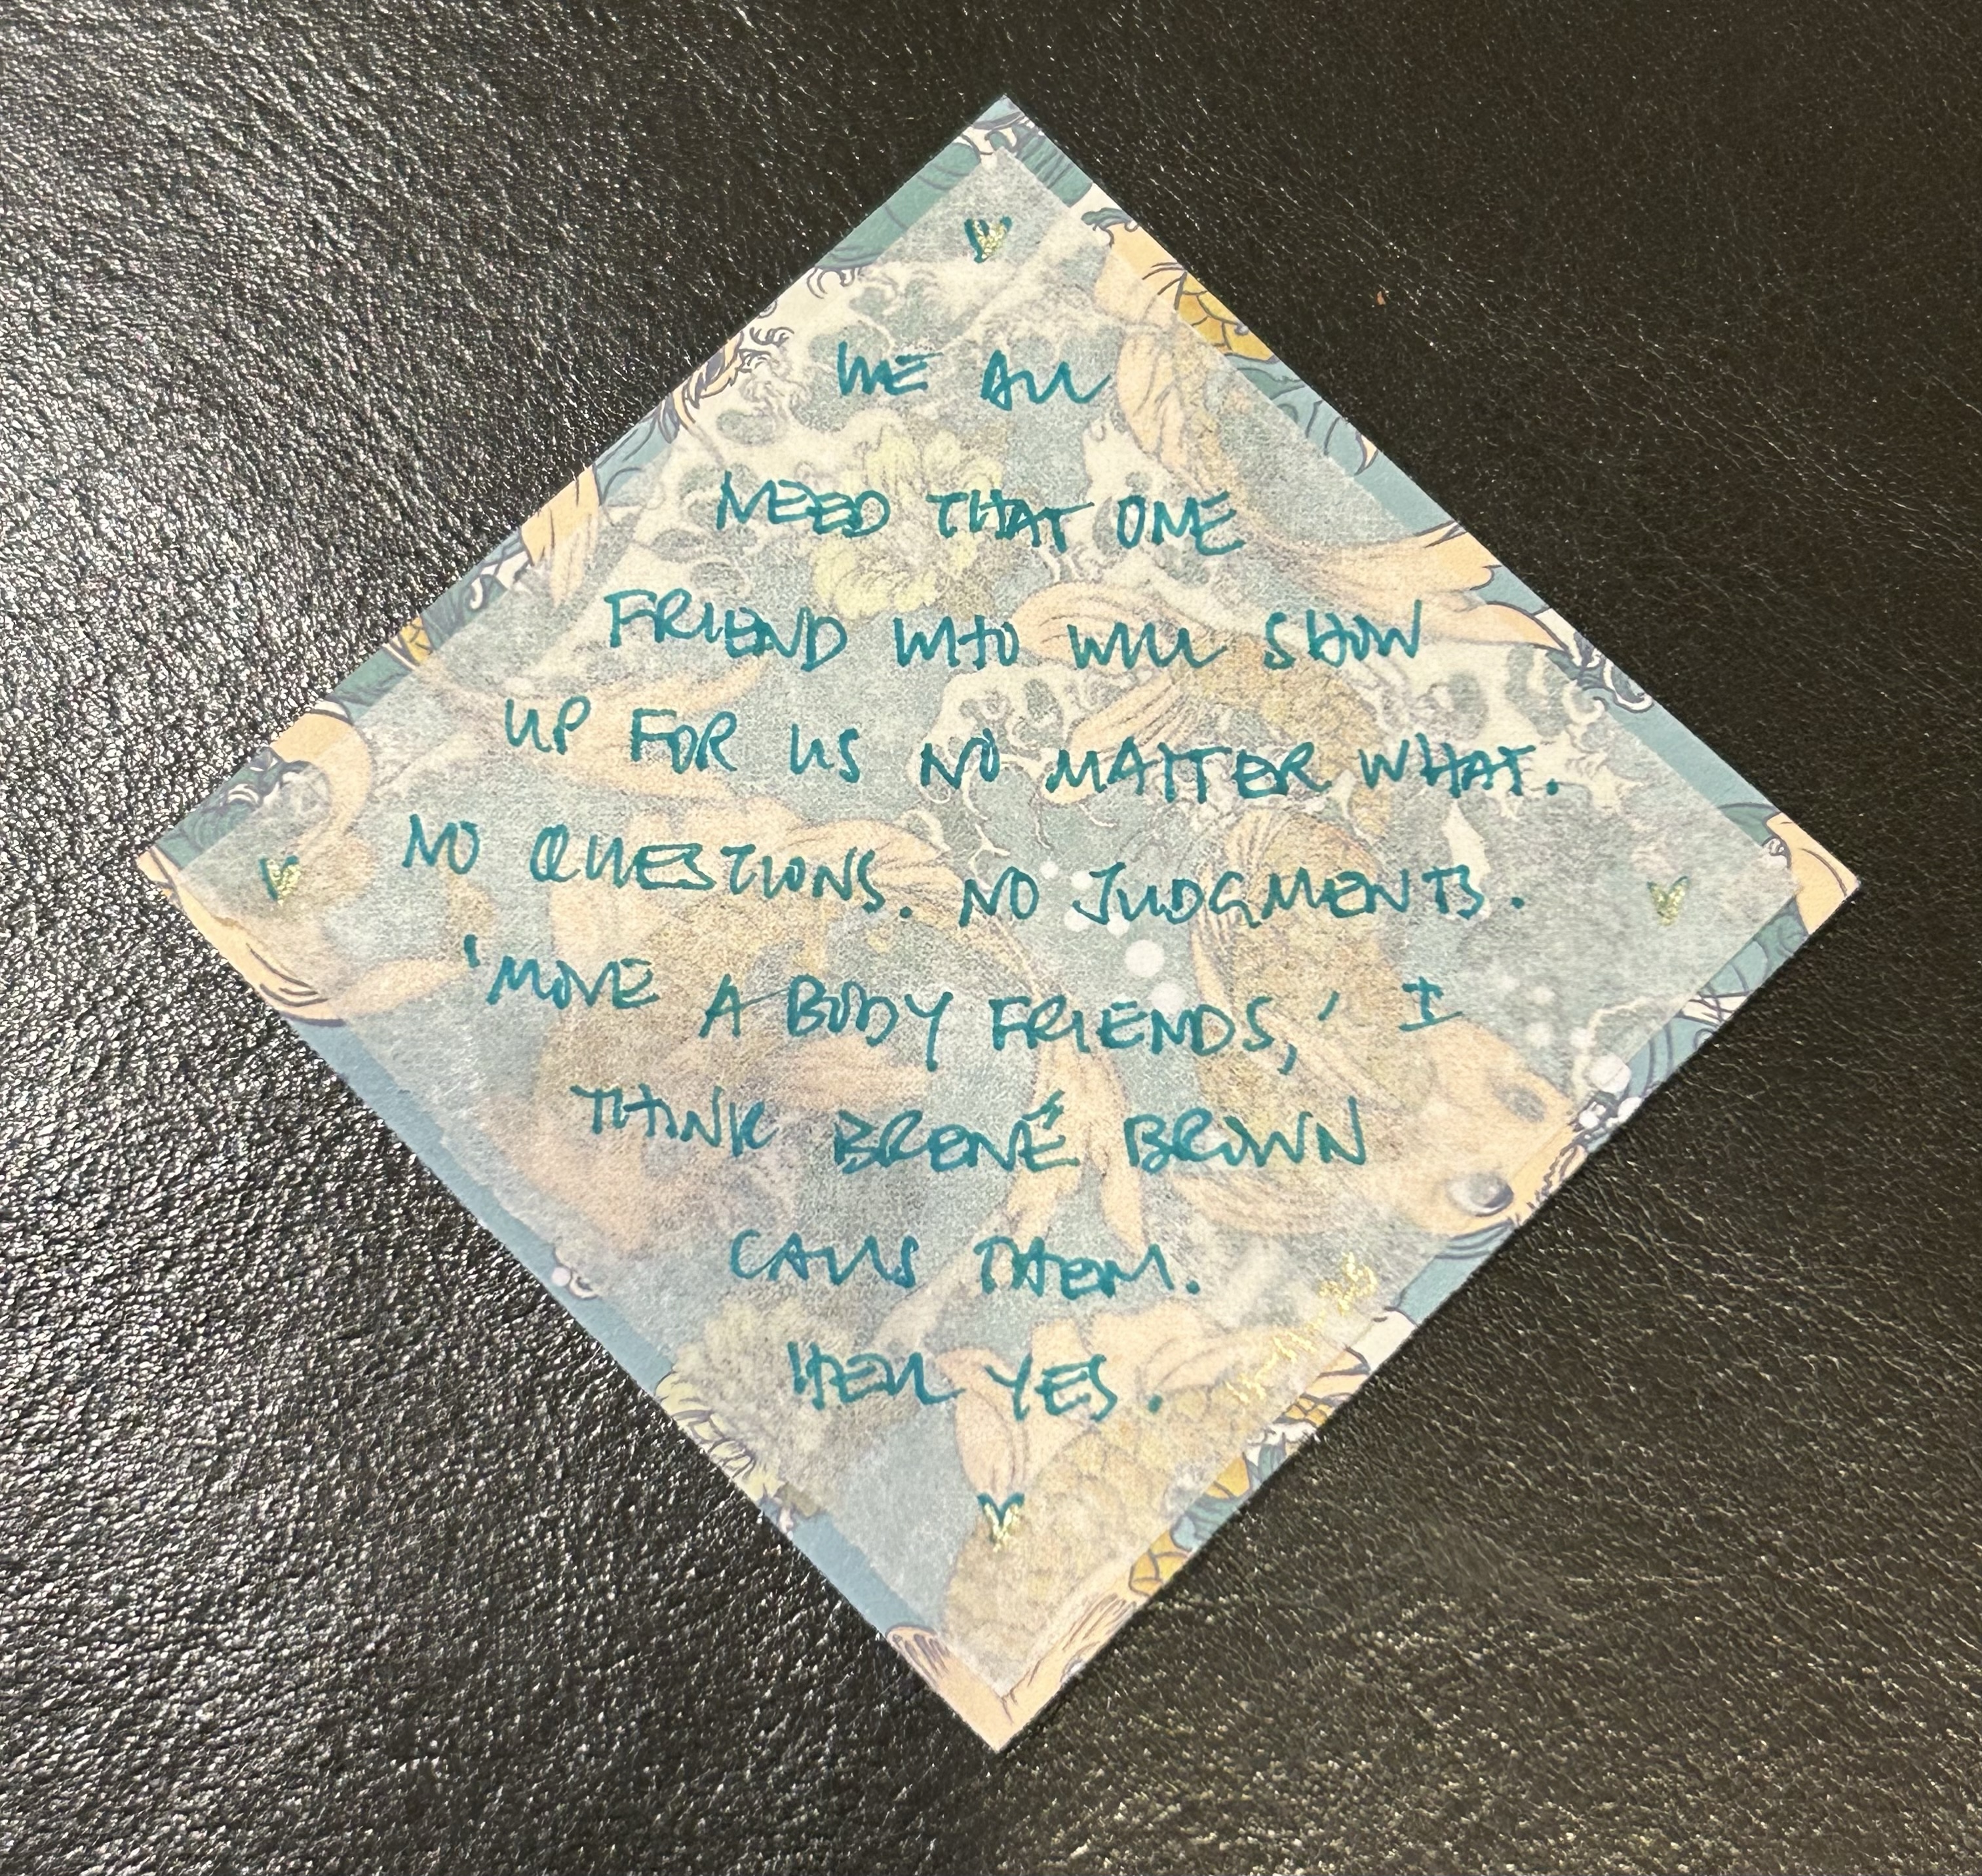 WE ALL
NEED THAT ONE
FRIEND WHO WILL SHOW
UP FOR US NO MATTER WHAT.
NO QUESTIONS. NO JUDGMENTS.
'MOVE A BODY FRIENDS,' I
THINK BRENÉ BROWN
CALLS THEM.
HELL YES.